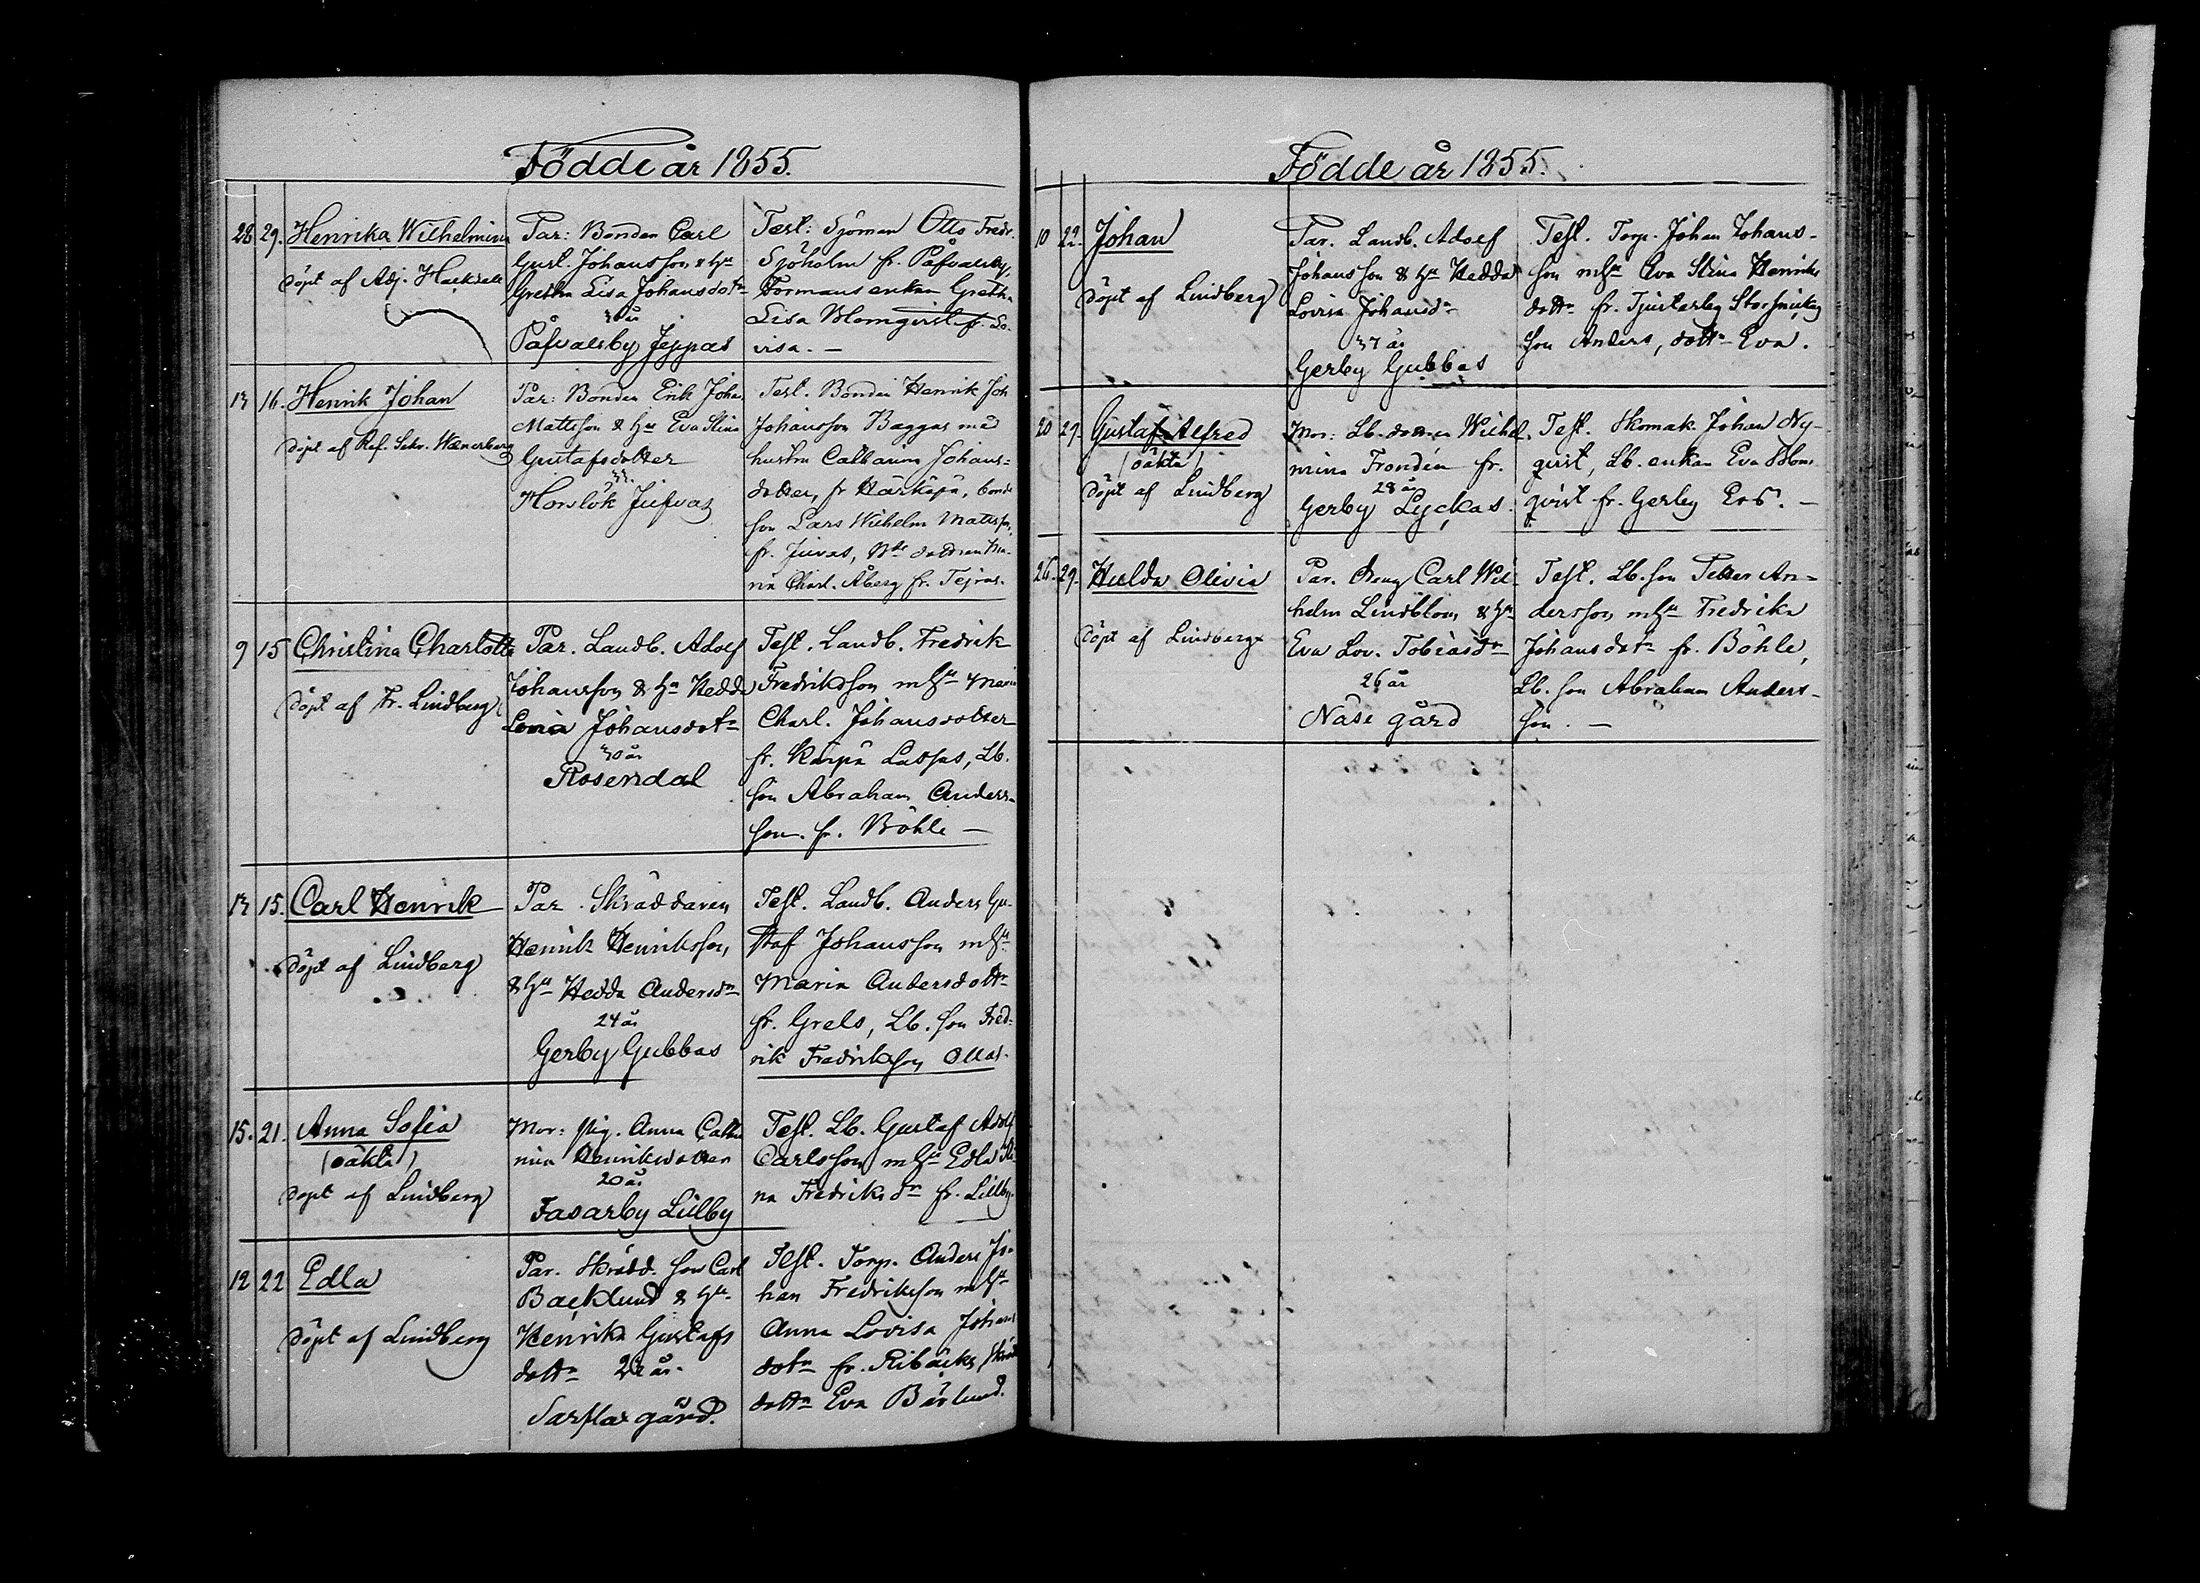 Födde år 1855.
28 29. Henrika Wilhelmina
döpt af Adj. Hacksell
Par: Bonden Carl
Gust. Johansson & Hu
Gretha Lisa Johansdotr
30 år
Påfvalsby Jeppas
Test: Sjöman Otto Fredr.
Sjöholm fr. Påfvalsby,
Formans enkan Gretha
Lisa Blomqvist fr. Lo-
visa. —
13 16. Henrik Johan
döpt af Ref. Sekr. Wænerberg
Par: Bonden Erik Joha
Mattsson & Hu Eva Stina
Gustafsdotter
33.
Horslök Jufvas
Test. Bonden Henrik Joh
Johansson Baggas med
hustru Catharina Johans-
dotter, fr Härkäpä, bonde
son Lars Wilhelm Mattsson,
fr. Juvas, Bde dottren Ma-
ria Charl. Åberg fr. Tejras.
9 15 Christina Charlotta
döpt af Fr. Lindberg
Par. Landb. Adolf
Johansson & Hu Hedda
Lovisa Johansdotr
30 år
Rosendal
Test. Landb. Fredrik
Fredriksson m Hu Maria
Charl. Johansdotter
fr. Kärpä Lassas, Lb.
son Abraham Anders-
son fr. Böhle —
13 15. Carl Henrik
döpt af Lindberg
Par. Skräddaren
Henrik Henriksson
& Hu Hedda Andersdr
24 år
Gerby Gubbas
Test. Landb. Anders Gu-
staf Johansson m Hu
Maria Andersdottr
fr. Grels, Lb. son Fred-
rik Fredriksson Ollas.
15. 21. Anna Sofia
(oäkta)
döpt af Lindberg
Mor: pig. Anna Catha
rina Henriksdotter
20 år
Fasarby Lillby
Test. Lb. Gustaf Adolf
Carlsson m Hu Edla Sti
na Fredriksdr fr. Lillby.
12 22 Edla
döpt af Lindberg
Par. Skrädd. son Carl
Backlund & Hu
Henrika Gustafs
dottr år.
Sarflax gård.
Test. Torp. Anders Jo-
han Fredriksson m Hu
Anna Lovisa Johans
dotr fr. Ribäcks, Skrädd
dottr Eva Bärlund.
Födde år 1855.
10 22. Johan
döpt af Lindberg
Par. Landb. Adolf
Johansson & Hu Hedda
Lovisa Johansdr
37 år
Gerby Gubbas
Test. Torp. Johan Johans-
son m Hu Eva Stina Henriks
dottr fr. Tjusterby
son Anders, dottr Eva.
20 29. Gustaf Alfred
(oäkta)
döpt af Lindberg
Mor: Lb. dottren Wilhel-
mina Frondén fr.
28 år
Gerby Lyckas.
Test. Skomak. Johan Ny-
qvist, Lb. enkan Eva Blom
qvist fr. Gerby Ers. —
26. 29. Hulda Olivia
döpt af Lindberg
Par. Dreng Carl Wil-
helm Lindblom & Hu
Eva Lov. Tobiasdr
26 år
Näse gård
Test. Lb. son Petter An-
dersson m Hu Fredrika
Johansdotr fr. Böhle,
Lb. son Abraham Anders-
son. —